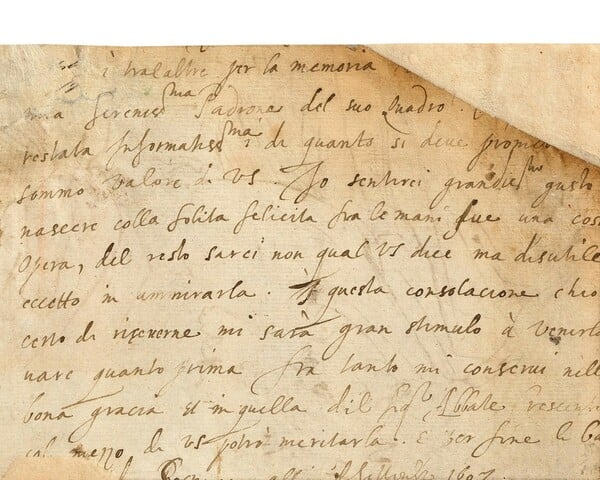 i tralaltre per la memoria
ma serenis ma Padrona del suo Quadro.
restata Informatiss ma di quanto si deve
sommo valore di VS. Io sentirei grandis mo gusto
nascere colla solita felicita fra le mani sue una cos
opera, del resto sarei non qual VS dice ma disutile
eccetto in ammirarla. Et questa consolacione chio
certo di riceverne mi sarà gran stimulo à venirla
vare quanto prima fra tanto mi conservi nell
bona gracia et in quella dil Sig.r Abbate
col mezzo di VS potrò meritarla. E per fine le ba
1607